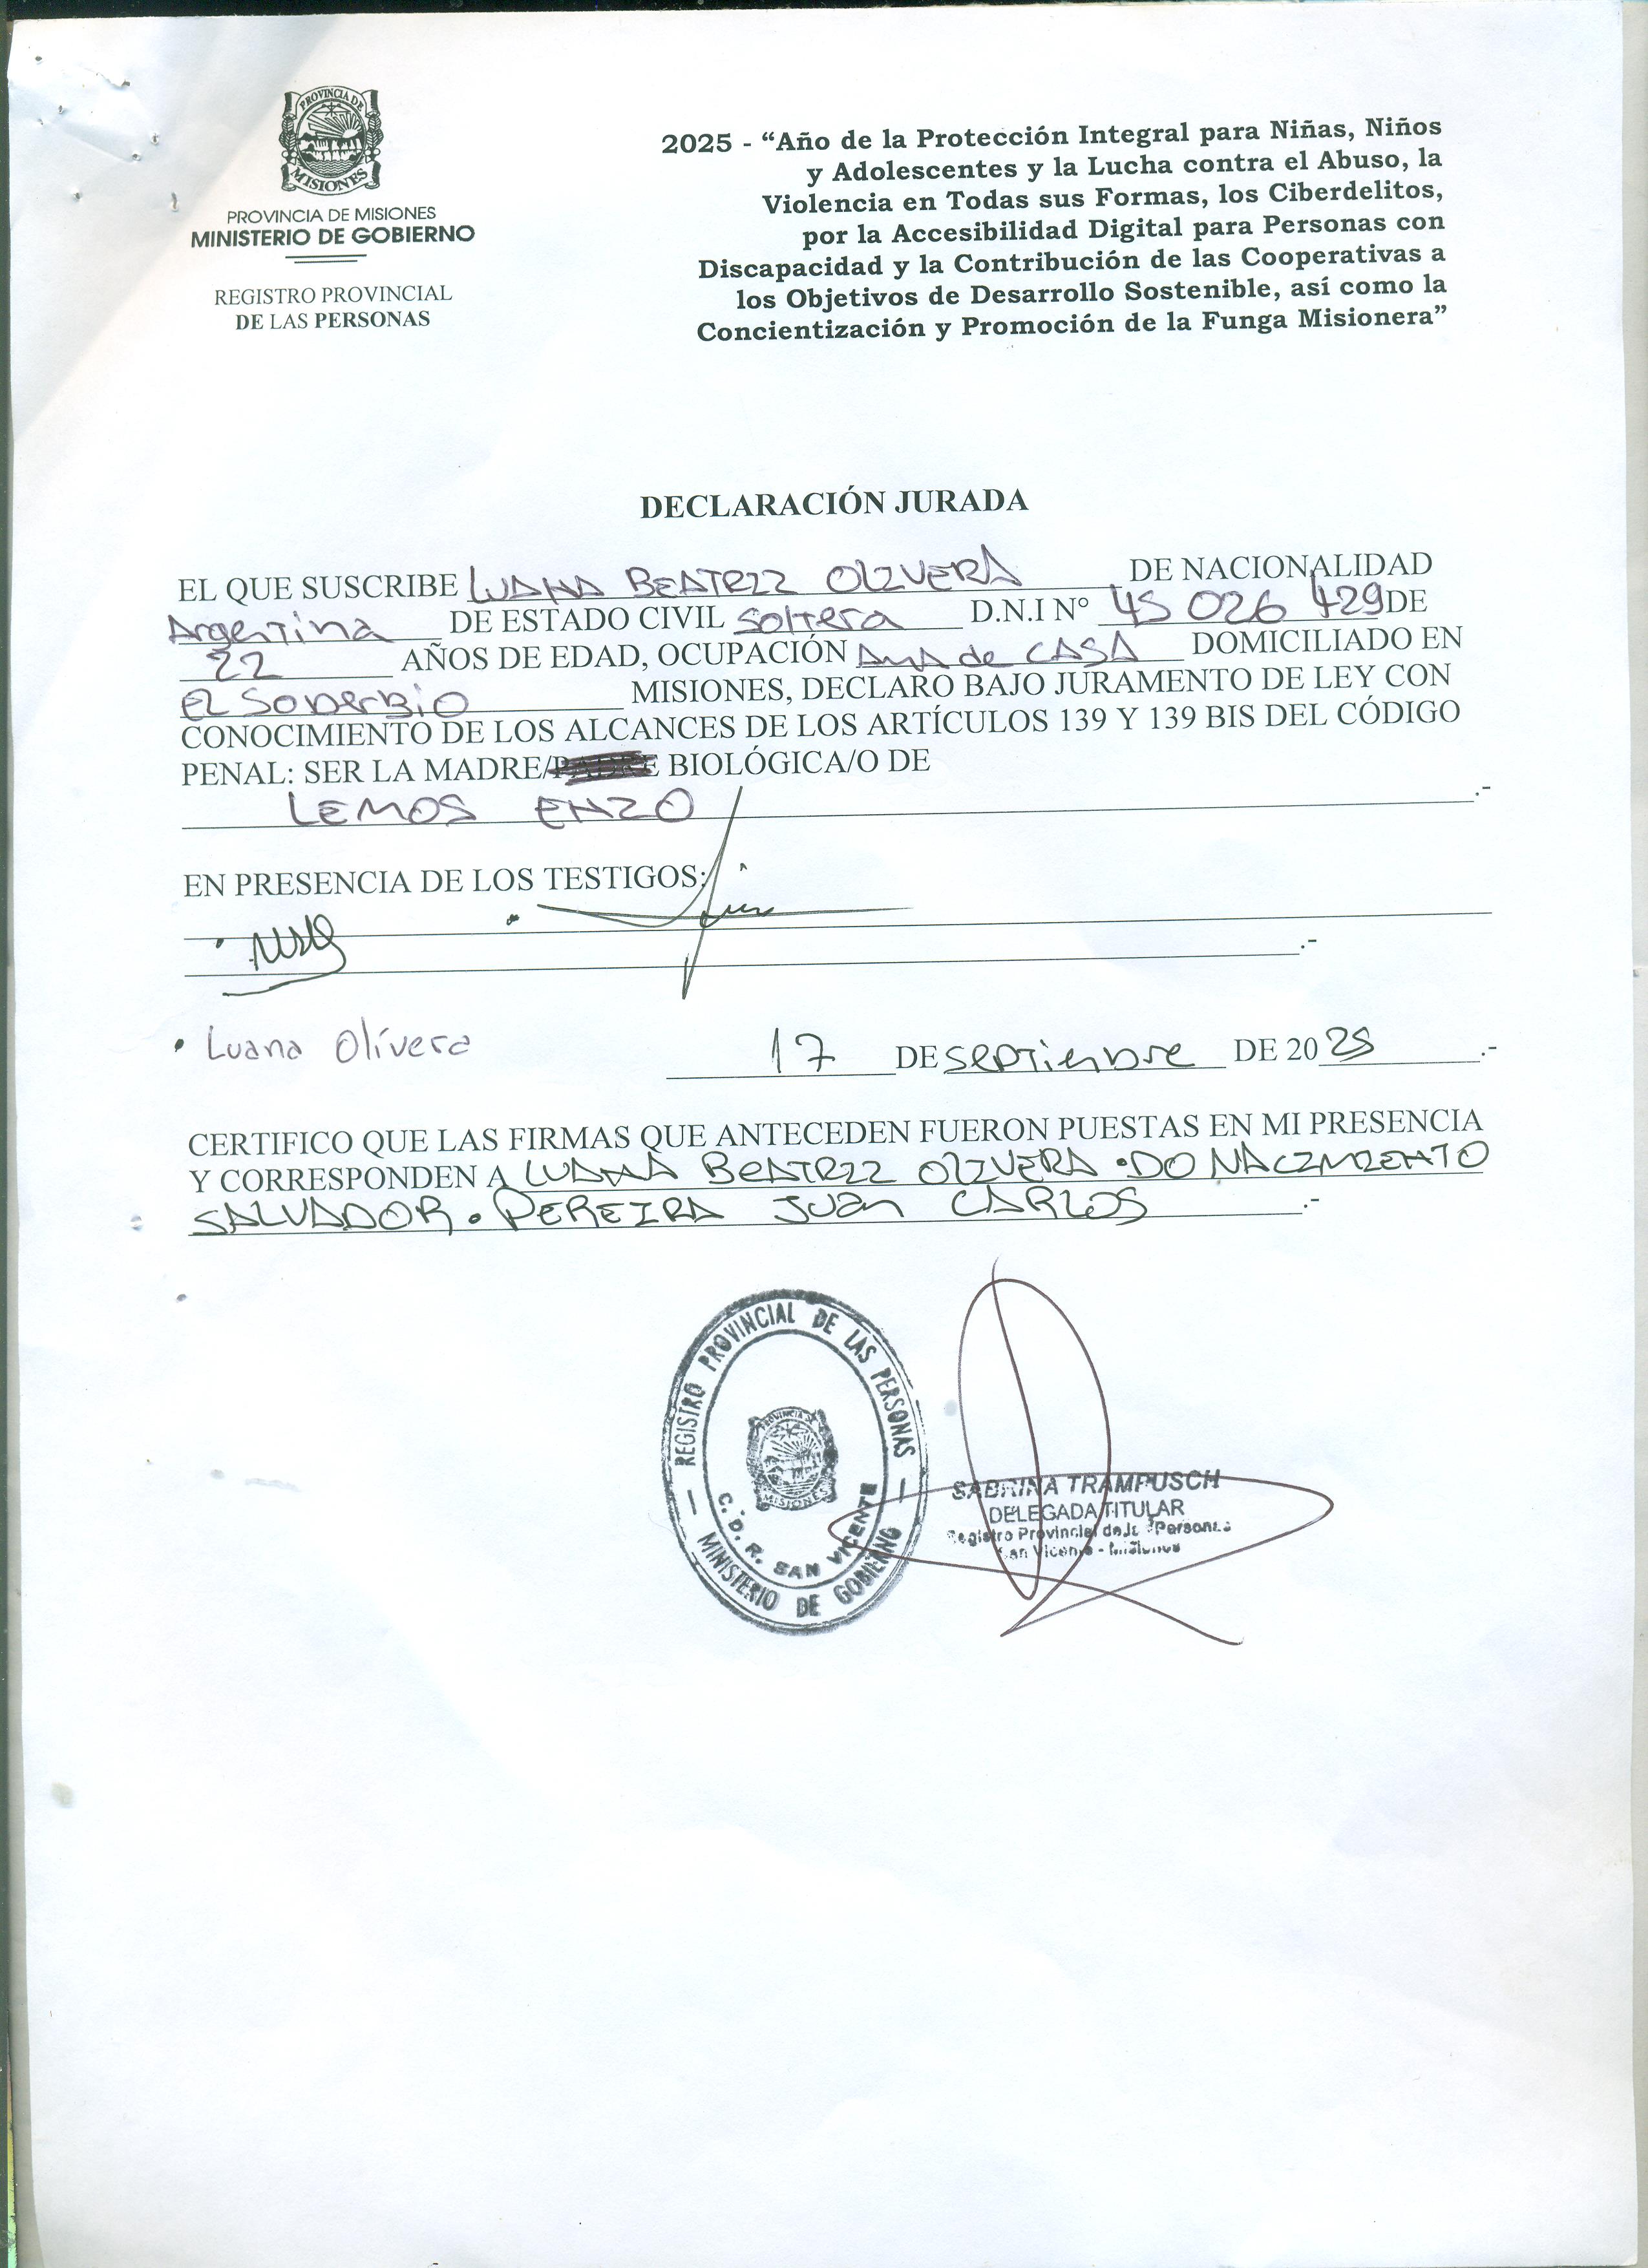 PROVINCIA DE
MISIONES
PROVINCIA DE MISIONES
MINISTERIO DE GOBIERNO
REGISTRO PROVINCIAL
DE LAS PERSONAS
2025 - “Año de la Protección Integral para Niñas, Niños
y Adolescentes y la Lucha contra el Abuso, la
Violencia en Todas sus Formas, los Ciberdelitos,
por la Accesibilidad Digital para Personas con
Discapacidad y la Contribución de las Cooperativas a
los Objetivos de Desarrollo Sostenible, así como la
Concientización y Promoción de la Funga Misionera”
DECLARACIÓN JURADA
EL QUE SUSCRIBE LUANA BEATRIZ OLIVERA DE NACIONALIDAD
Argentina DE ESTADO CIVIL Soltera D.N.I N° 45 026 429 DE
22 AÑOS DE EDAD, OCUPACIÓN AMA de CASA DOMICILIADO EN
El Soberbio MISIONES, DECLARO BAJO JURAMENTO DE LEY CON
CONOCIMIENTO DE LOS ALCANCES DE LOS ARTÍCULOS 139 Y 139 BIS DEL CÓDIGO
PENAL: SER LA MADRE/PADRE BIOLÓGICA/O DE
LEMOS ENZO .-
EN PRESENCIA DE LOS TESTIGOS:
.-
• Luana Olivera
17 DE septiembre DE 2025 .-
CERTIFICO QUE LAS FIRMAS QUE ANTECEDEN FUERON PUESTAS EN MI PRESENCIA
Y CORRESPONDEN A LUANA BEATRIZ OLIVERA • DO NACIMIENTO
SALVADOR • PEREIRA JUAN CARLOS .-
REGISTRO PROVINCIAL DE LAS PERSONAS
PROVINCIA DE
MISIONES
C. D. R. SAN VICENTE
MINISTERIO DE GOBIERNO
SABRINA TRAMPUSCH
DELEGADA TITULAR
Registro Provincial de las Personas
San Vicente - Misiones